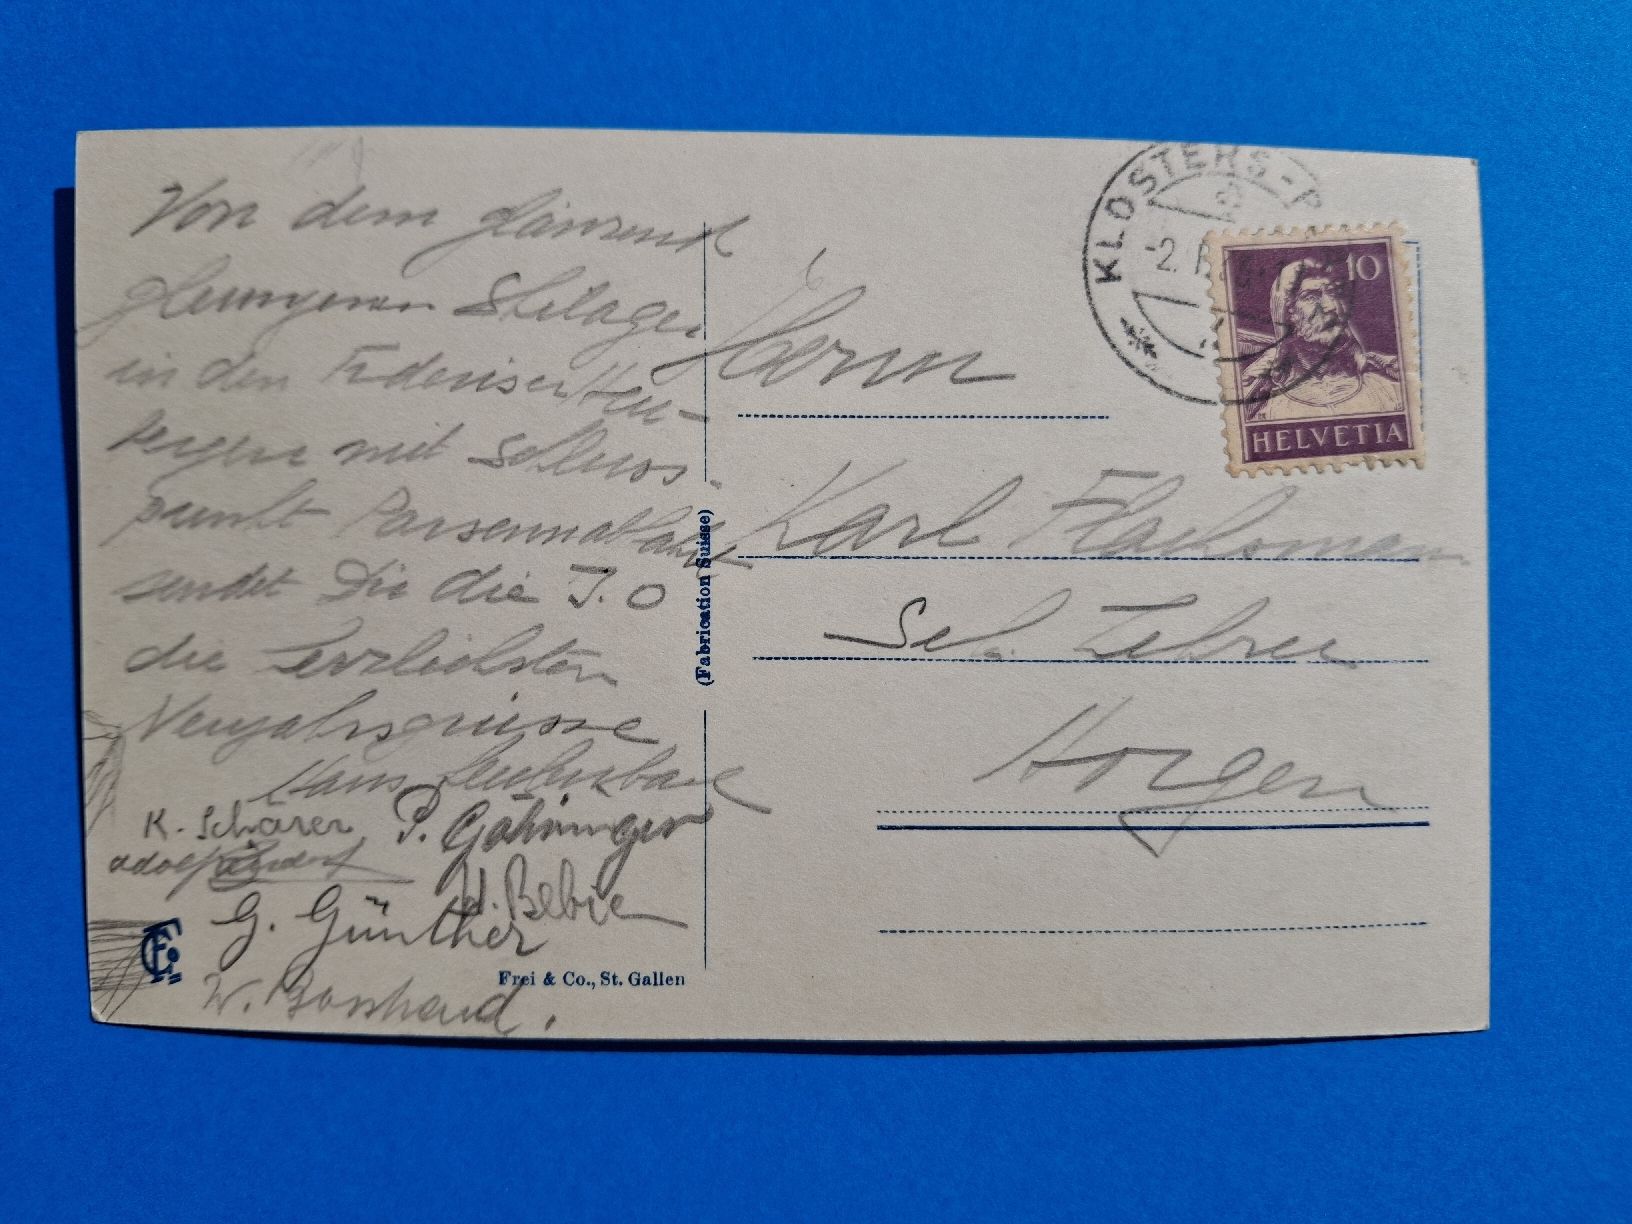 Von dem glänzend
gelungenen Skilager
in den Fideriser Heu-
bergen mit Schluss-
punkt Parsennabfahrt
sendet Dir die J.O
die herzlichsten
Neujahrsgrüsse
Hans
K. Schärer P. Gähwinger
Adolf
H. Bebie
G. Günther
W. Bosshard.
Frei & Co., St. Gallen
(Fabrication Suisse)
KLOSTERS-P
-2.
10
HELVETIA
Herrn
Karl Flachsmann
Sek. Lehrer
Horgen